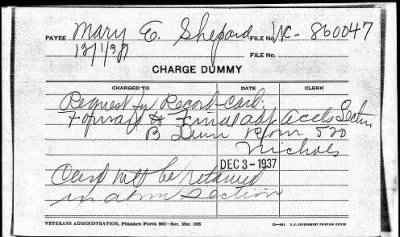 PAYEE Mary E. Shepard FILE No. WC - 860047
12/1/37 FILE No.
CHARGE DUMMY
CHARGED TO DATE CLERK
Request for Record Card.
Forward to Final adj. Accts Section
B Dunn Room 520
Nichols
DEC 3 - 1937
Card will be retained
in adm Section
VETERANS ADMINISTRATION, Finance Form
U. S. GOVERNMENT PRINTING OFFICE